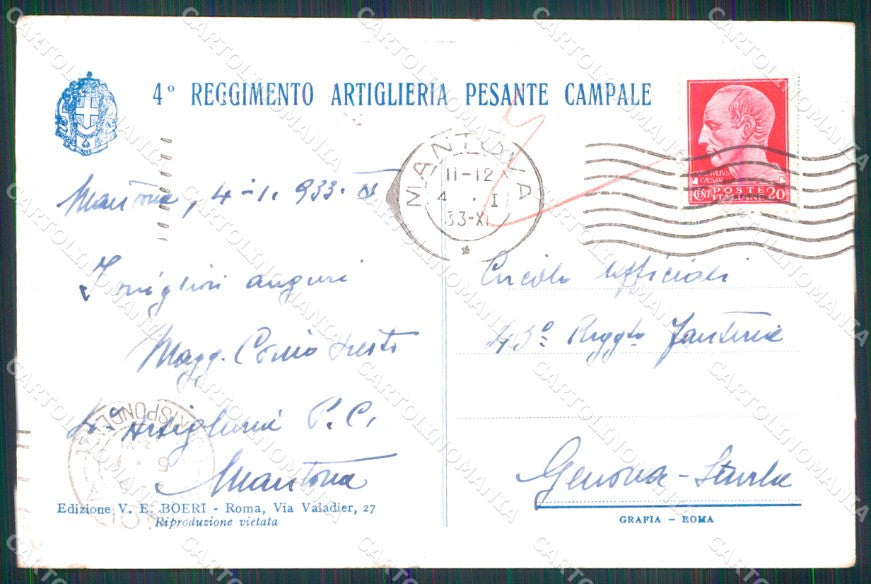 4º REGGIMENTO ARTIGLIERIA PESANTE CAMPALE
MANTOVA
11-12
4 . I
33-XI
ROMA
CAES
CENT POSTE 20
ITALIANE
Mantova, 4-1. 933. XI
I migliori auguri
Magg.
4º Artiglieria P. C.
Mantova
Circolo Ufficiali
43º Reggto Fanteria
Genova - Sturla
CORRISPONDENZE
Edizione V. E. BOERI - Roma, Via Valadier, 27
Riproduzione vietata
GRAFIA - ROMA
CARTOLINOMANIA